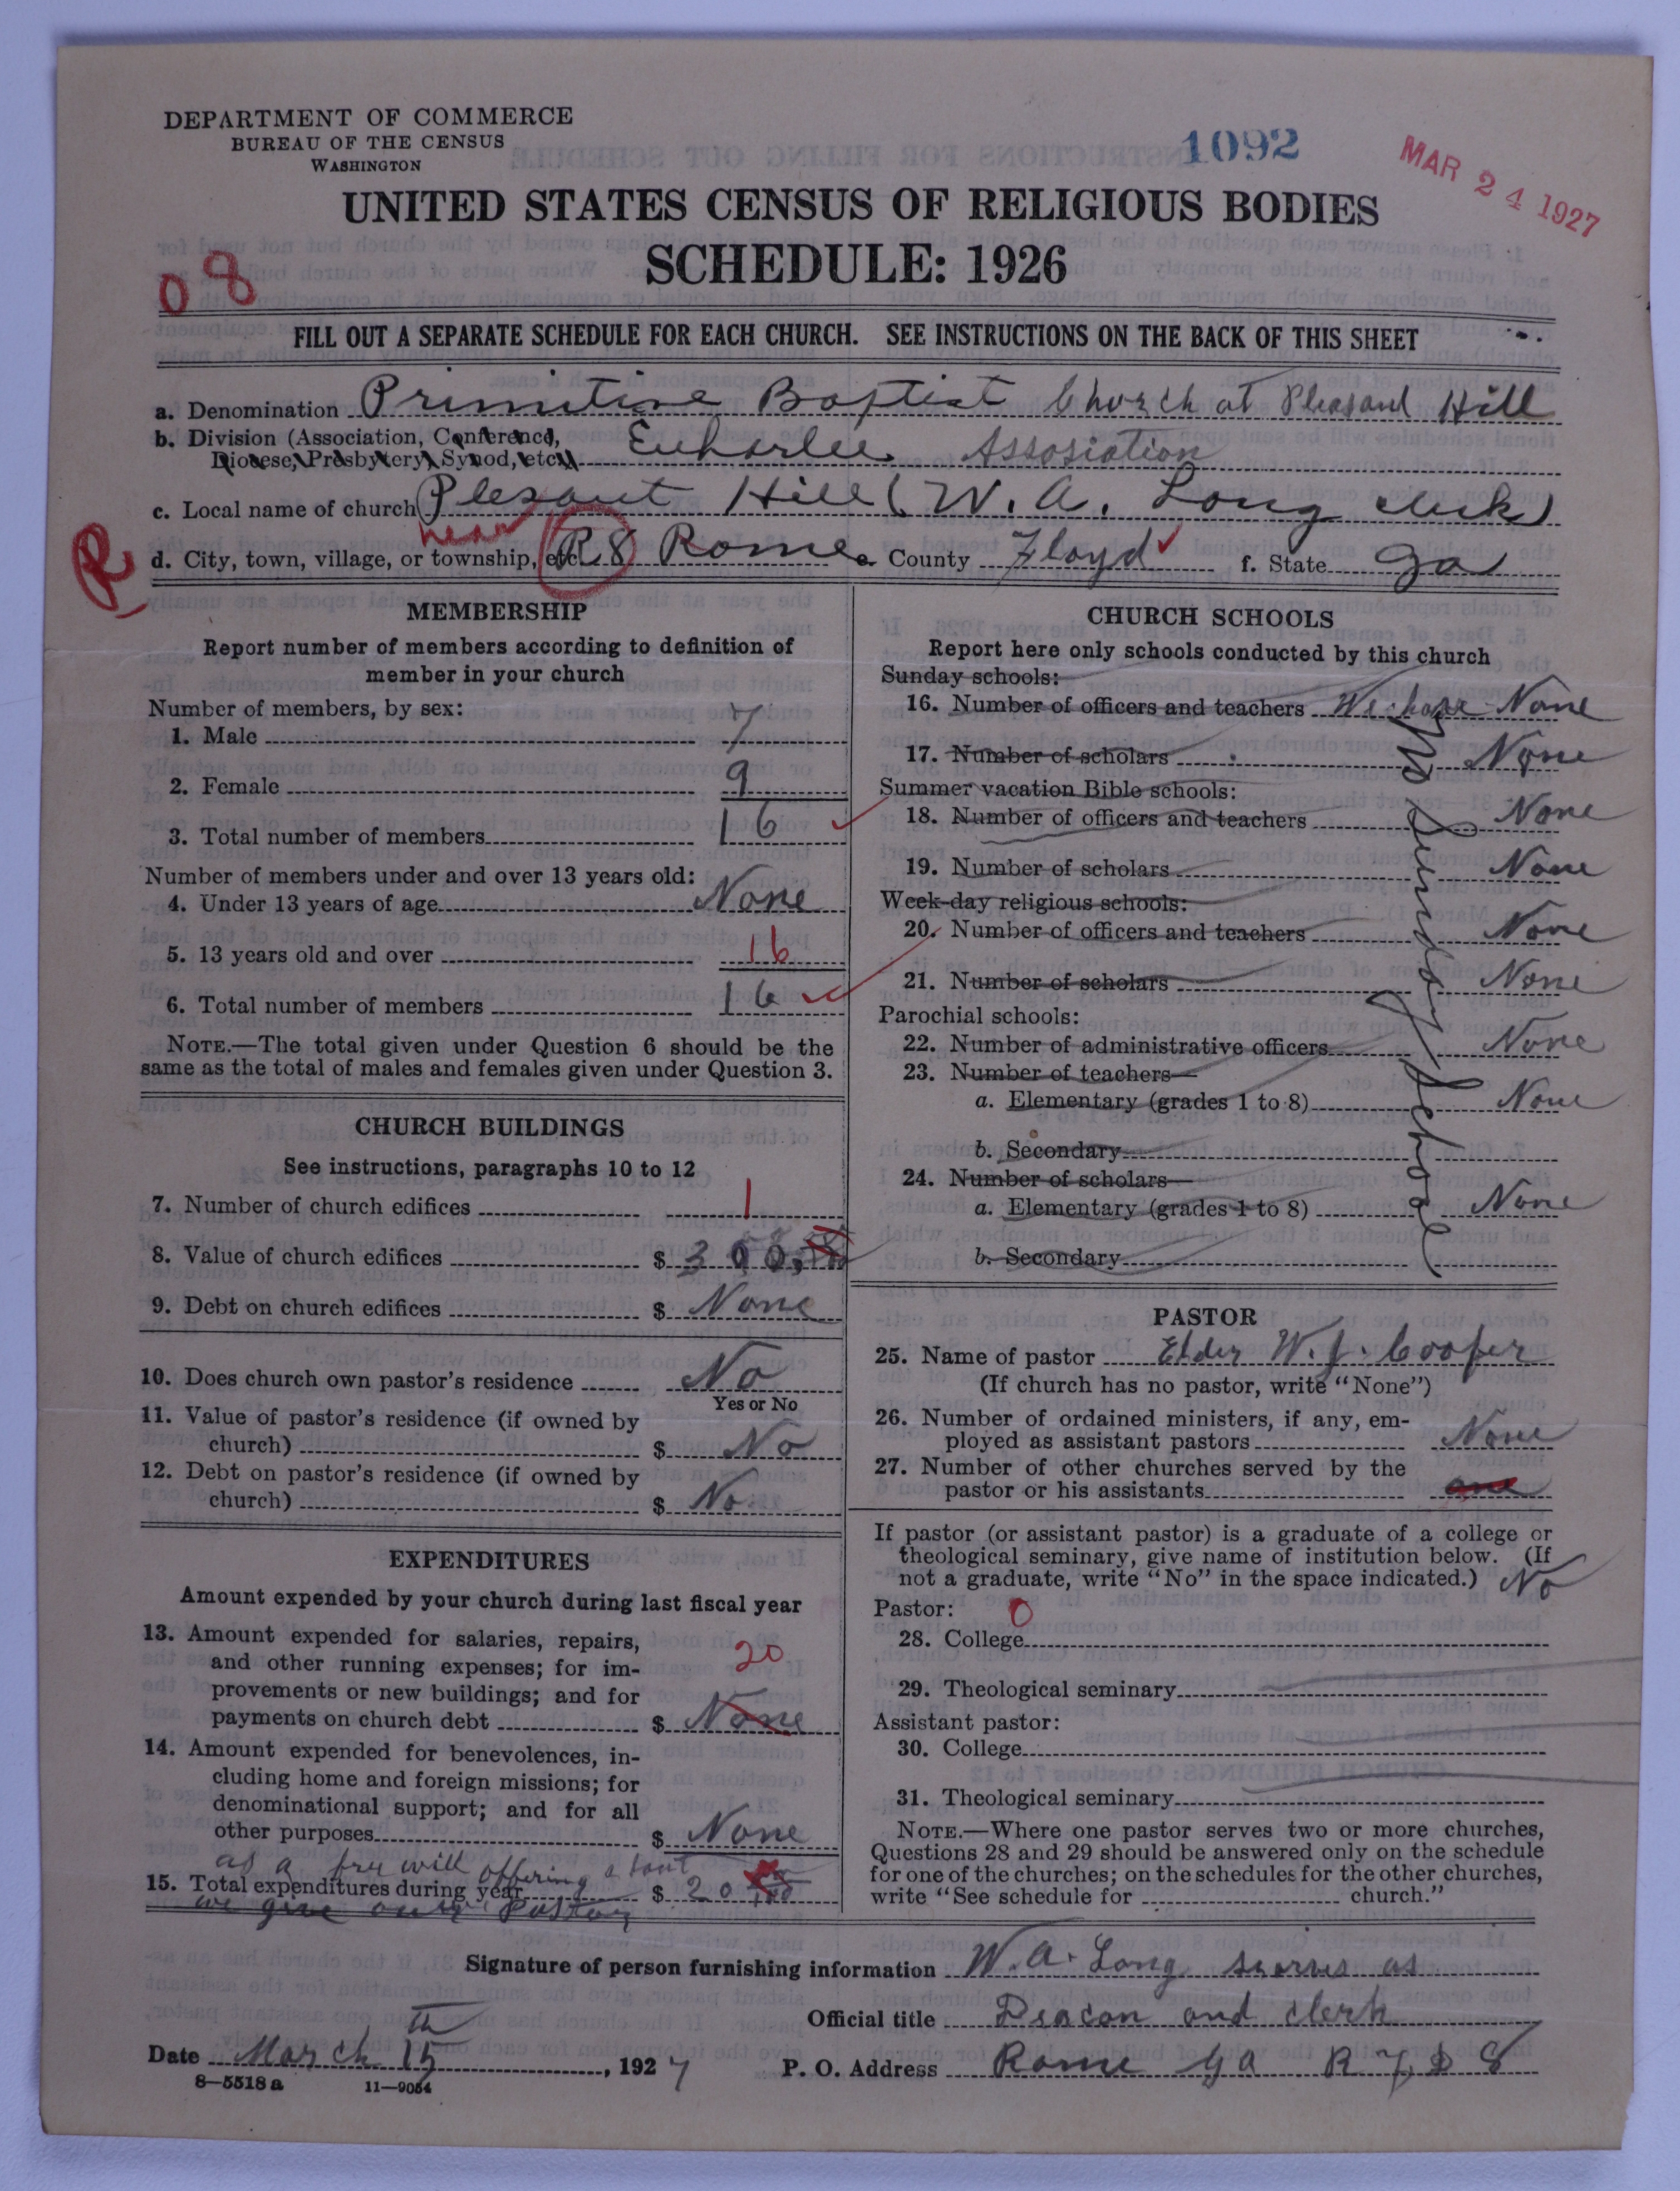 DEPARTMENT OF COMMERCE
BUREAU OF THE CENSUS
WASHINGTON
1092
MAR 24 1927
UNITED STATES CENSUS OF RELIGIOUS BODIES
SCHEDULE: 1926
08
FILL OUT A SEPARATE SCHEDULE FOR EACH CHURCH. SEE INSTRUCTIONS ON THE BACK OF THIS SHEET
a. Denomination Primitive Baptist Church at Pleasant Hill
b. Division (Association, Conference, Euharlee Assosiation
Diocese, Presbytery, Synod, etc.)
c. Local name of church Plesant Hill (W. A. Long clerk)
near
R d. City, town, village, or township, etc. R 8 Rome e. County Floyd f. State Ga
MEMBERSHIP
Report number of members according to definition of
member in your church
Number of members, by sex:
1. Male 7
2. Female 9
3. Total number of members 16
Number of members under and over 13 years old:
4. Under 13 years of age None
5. 13 years old and over 16
6. Total number of members 16
NOTE.—The total given under Question 6 should be the
same as the total of males and females given under Question 3.
CHURCH BUILDINGS
See instructions, paragraphs 10 to 12
7. Number of church edifices 1
8. Value of church edifices $ 300.
9. Debt on church edifices $ None
10. Does church own pastor's residence No
Yes or No
11. Value of pastor's residence (if owned by
church) $ No
12. Debt on pastor's residence (if owned by
church) $ No
EXPENDITURES
Amount expended by your church during last fiscal year
13. Amount expended for salaries, repairs,
and other running expenses; for im- 20
provements or new buildings; and for
payments on church debt $ None
14. Amount expended for benevolences, in-
cluding home and foreign missions; for
denominational support; and for all
other purposes $ None
as a free will offering about
15. Total expenditures during year $ 20
we give our Pastor
CHURCH SCHOOLS
Report here only schools conducted by this church
Sunday schools:
16. Number of officers and teachers We have None
17. Number of scholars None
Summer vacation Bible schools:
18. Number of officers and teachers None
19. Number of scholars None
Week-day religious schools:
20. Number of officers and teachers None
21. Number of scholars None
Parochial schools:
22. Number of administrative officers None
23. Number of teachers—
a. Elementary (grades 1 to 8) None
b. Secondary
24. Number of scholars—
a. Elementary (grades 1 to 8) None
b. Secondary
No Sunday School
PASTOR
25. Name of pastor Elder W. J. Cooper
(If church has no pastor, write "None")
26. Number of ordained ministers, if any, em-
ployed as assistant pastors None
27. Number of other churches served by the
pastor or his assistants one
If pastor (or assistant pastor) is a graduate of a college or
theological seminary, give name of institution below. (If
not a graduate, write "No" in the space indicated.) No
Pastor: 0
28. College
29. Theological seminary
Assistant pastor:
30. College
31. Theological seminary
NOTE.—Where one pastor serves two or more churches,
Questions 28 and 29 should be answered only on the schedule
for one of the churches; on the schedules for the other churches,
write "See schedule for church."
Signature of person furnishing information W. A. Long as
Official title Deacon and clerk
Date March 15th, 1927 P. O. Address Rome Ga R F D 8
8—5518 a 11—9054